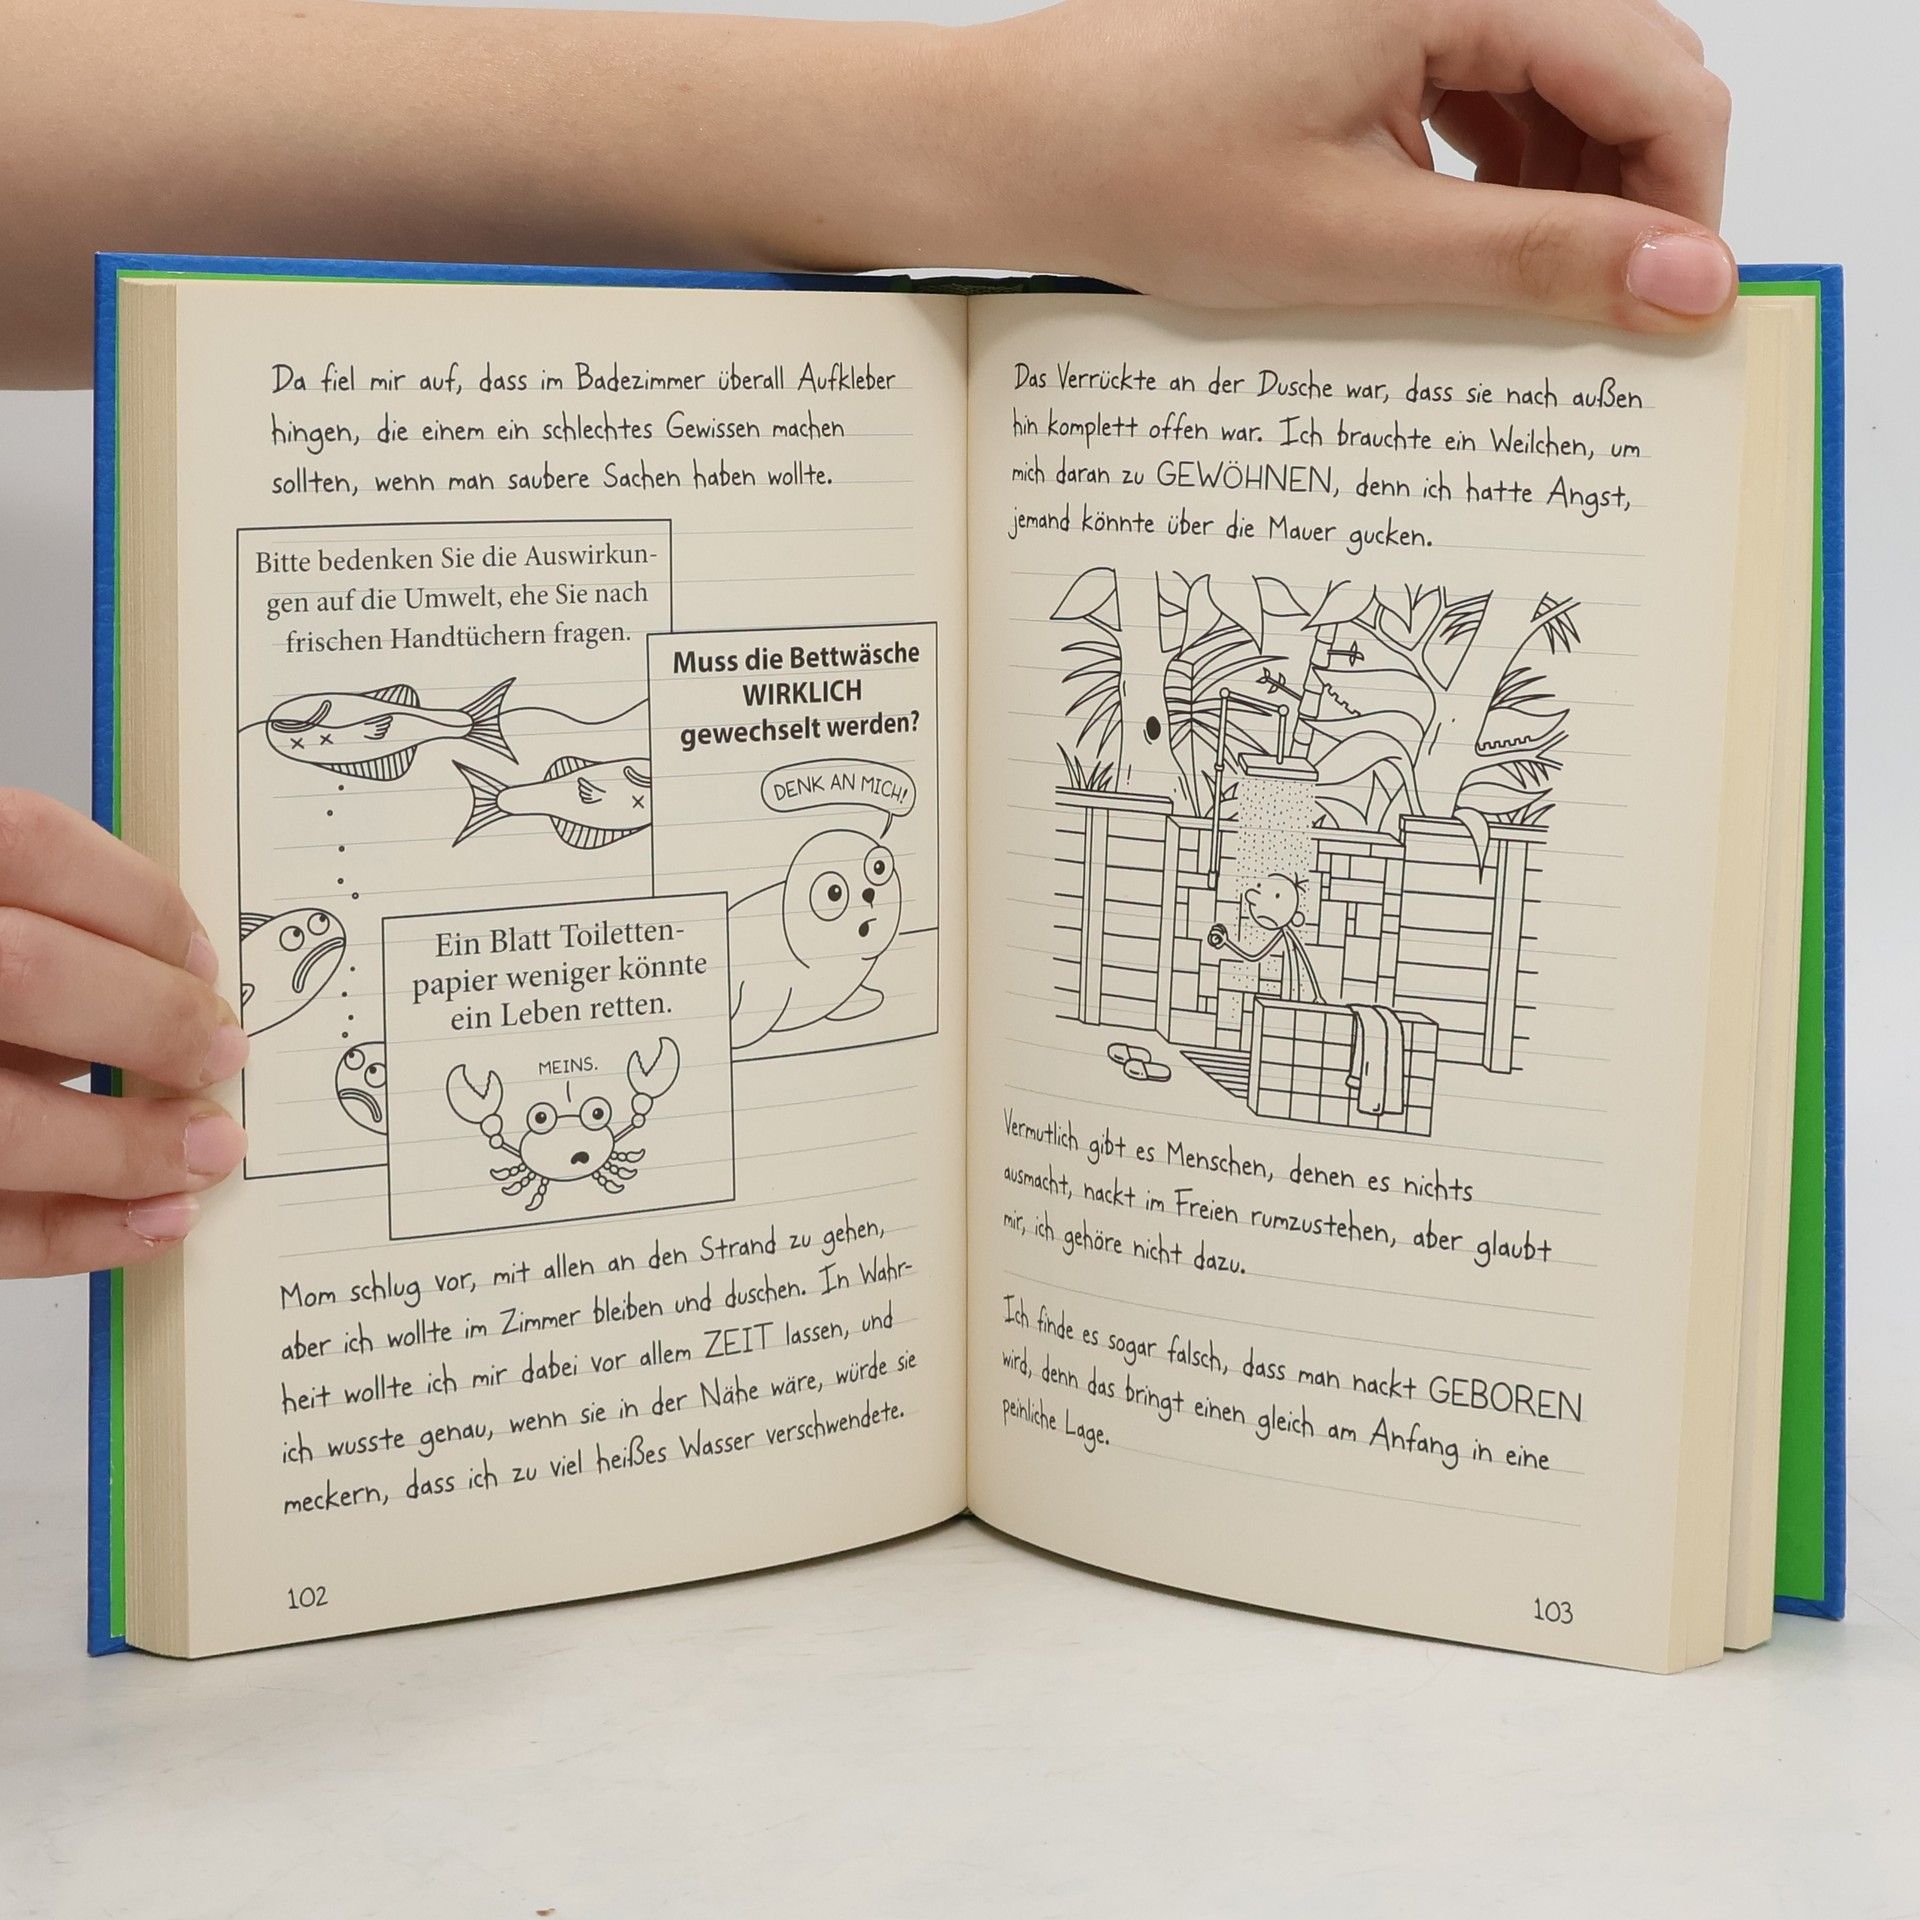 Da fiel mir auf, dass im Badezimmer überall Aufkleber
hingen, die einem ein schlechtes Gewissen machen
sollten, wenn man saubere Sachen haben wollte.
Bitte bedenken Sie die Auswirkun-
gen auf die Umwelt, ehe Sie nach
frischen Handtüchern fragen.
Muss die Bettwäsche
WIRKLICH
gewechselt werden?
DENK AN MICH!
Ein Blatt Toiletten-
papier weniger könnte
ein Leben retten.
MEINS.
Mom schlug vor, mit allen an den Strand zu gehen,
aber ich wollte im Zimmer bleiben und duschen. In Wahr-
heit wollte ich mir dabei vor allem ZEIT lassen, und
ich wusste genau, wenn sie in der Nähe wäre, würde sie
meckern, dass ich zu viel heißes Wasser verschwendete.
102
Das Verrückte an der Dusche war, dass sie nach außen
hin komplett offen war. Ich brauchte ein Weilchen, um
mich daran zu GEWÖHNEN, denn ich hatte Angst,
jemand könnte über die Mauer gucken.
Vermutlich gibt es Menschen, denen es nichts
ausmacht, nackt im Freien rumzustehen, aber glaubt
mir, ich gehöre nicht dazu.
Ich finde es sogar falsch, dass man nackt GEBOREN
wird, denn das bringt einen gleich am Anfang in eine
peinliche Lage.
103